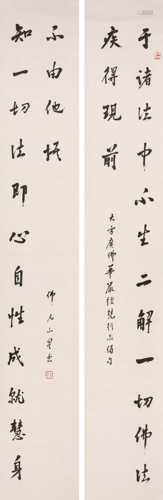 于诸法中不生二解一切佛法
疾得现前
大方广佛华严经梵行品偈句
知一切法即心自性成就慧身
不由他悟
佛光山星云